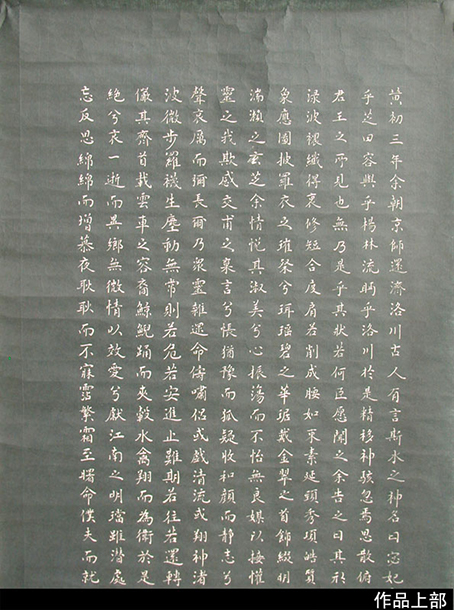 黄初三年余朝京師還濟洛川古人有言斯水之神名曰宓妃
乎芝田容與乎楊林流眄乎洛川於是精移神駭忽焉思散俯
君王之所見也無乃是乎其狀若何臣愿聞之余告之曰其形
渌波襛纖得衷修短合度肩若削成腰如束素延頸秀項皓質
象應圖披羅衣之璀粲兮珥瑶碧之華琚戴金翠之首飾綴明
湍瀨之玄芝余情悦其淑美兮心振蕩而不怡無良媒以接懽
靈之我欺感交甫之棄言兮悵猶豫而狐疑收和顔而靜志兮
聲哀厲而彌長爾乃衆靈雜遝命儔嘯侣或戲清流或翔神渚
波微步羅襪生塵動無常則若危若安進止難期若往若還轉
儀其齊首載雲車之容裔鯨鯢踊而夾轂水禽翔而為衛於是
絶兮哀一逝而異鄉無微情以效愛兮獻江南之明璫雖潛處
忘反思綿綿而增慕夜耿耿而不寐霑繁霜至曙命僕夫而就
作品上部